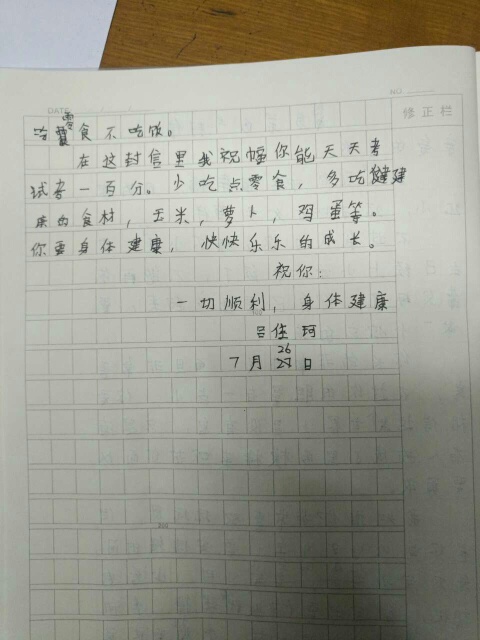 DATE / /
NO.
修正栏
吃零食不吃饭。
在这封信里我祝幅你能天天考
试考一百分。少吃点零食，多吃健建
康的食材，玉米，萝卜，鸡蛋等。
你要身体建康，快快乐乐的成长。
祝你：
一切顺利，身体建康
吕佳珂
7月26日